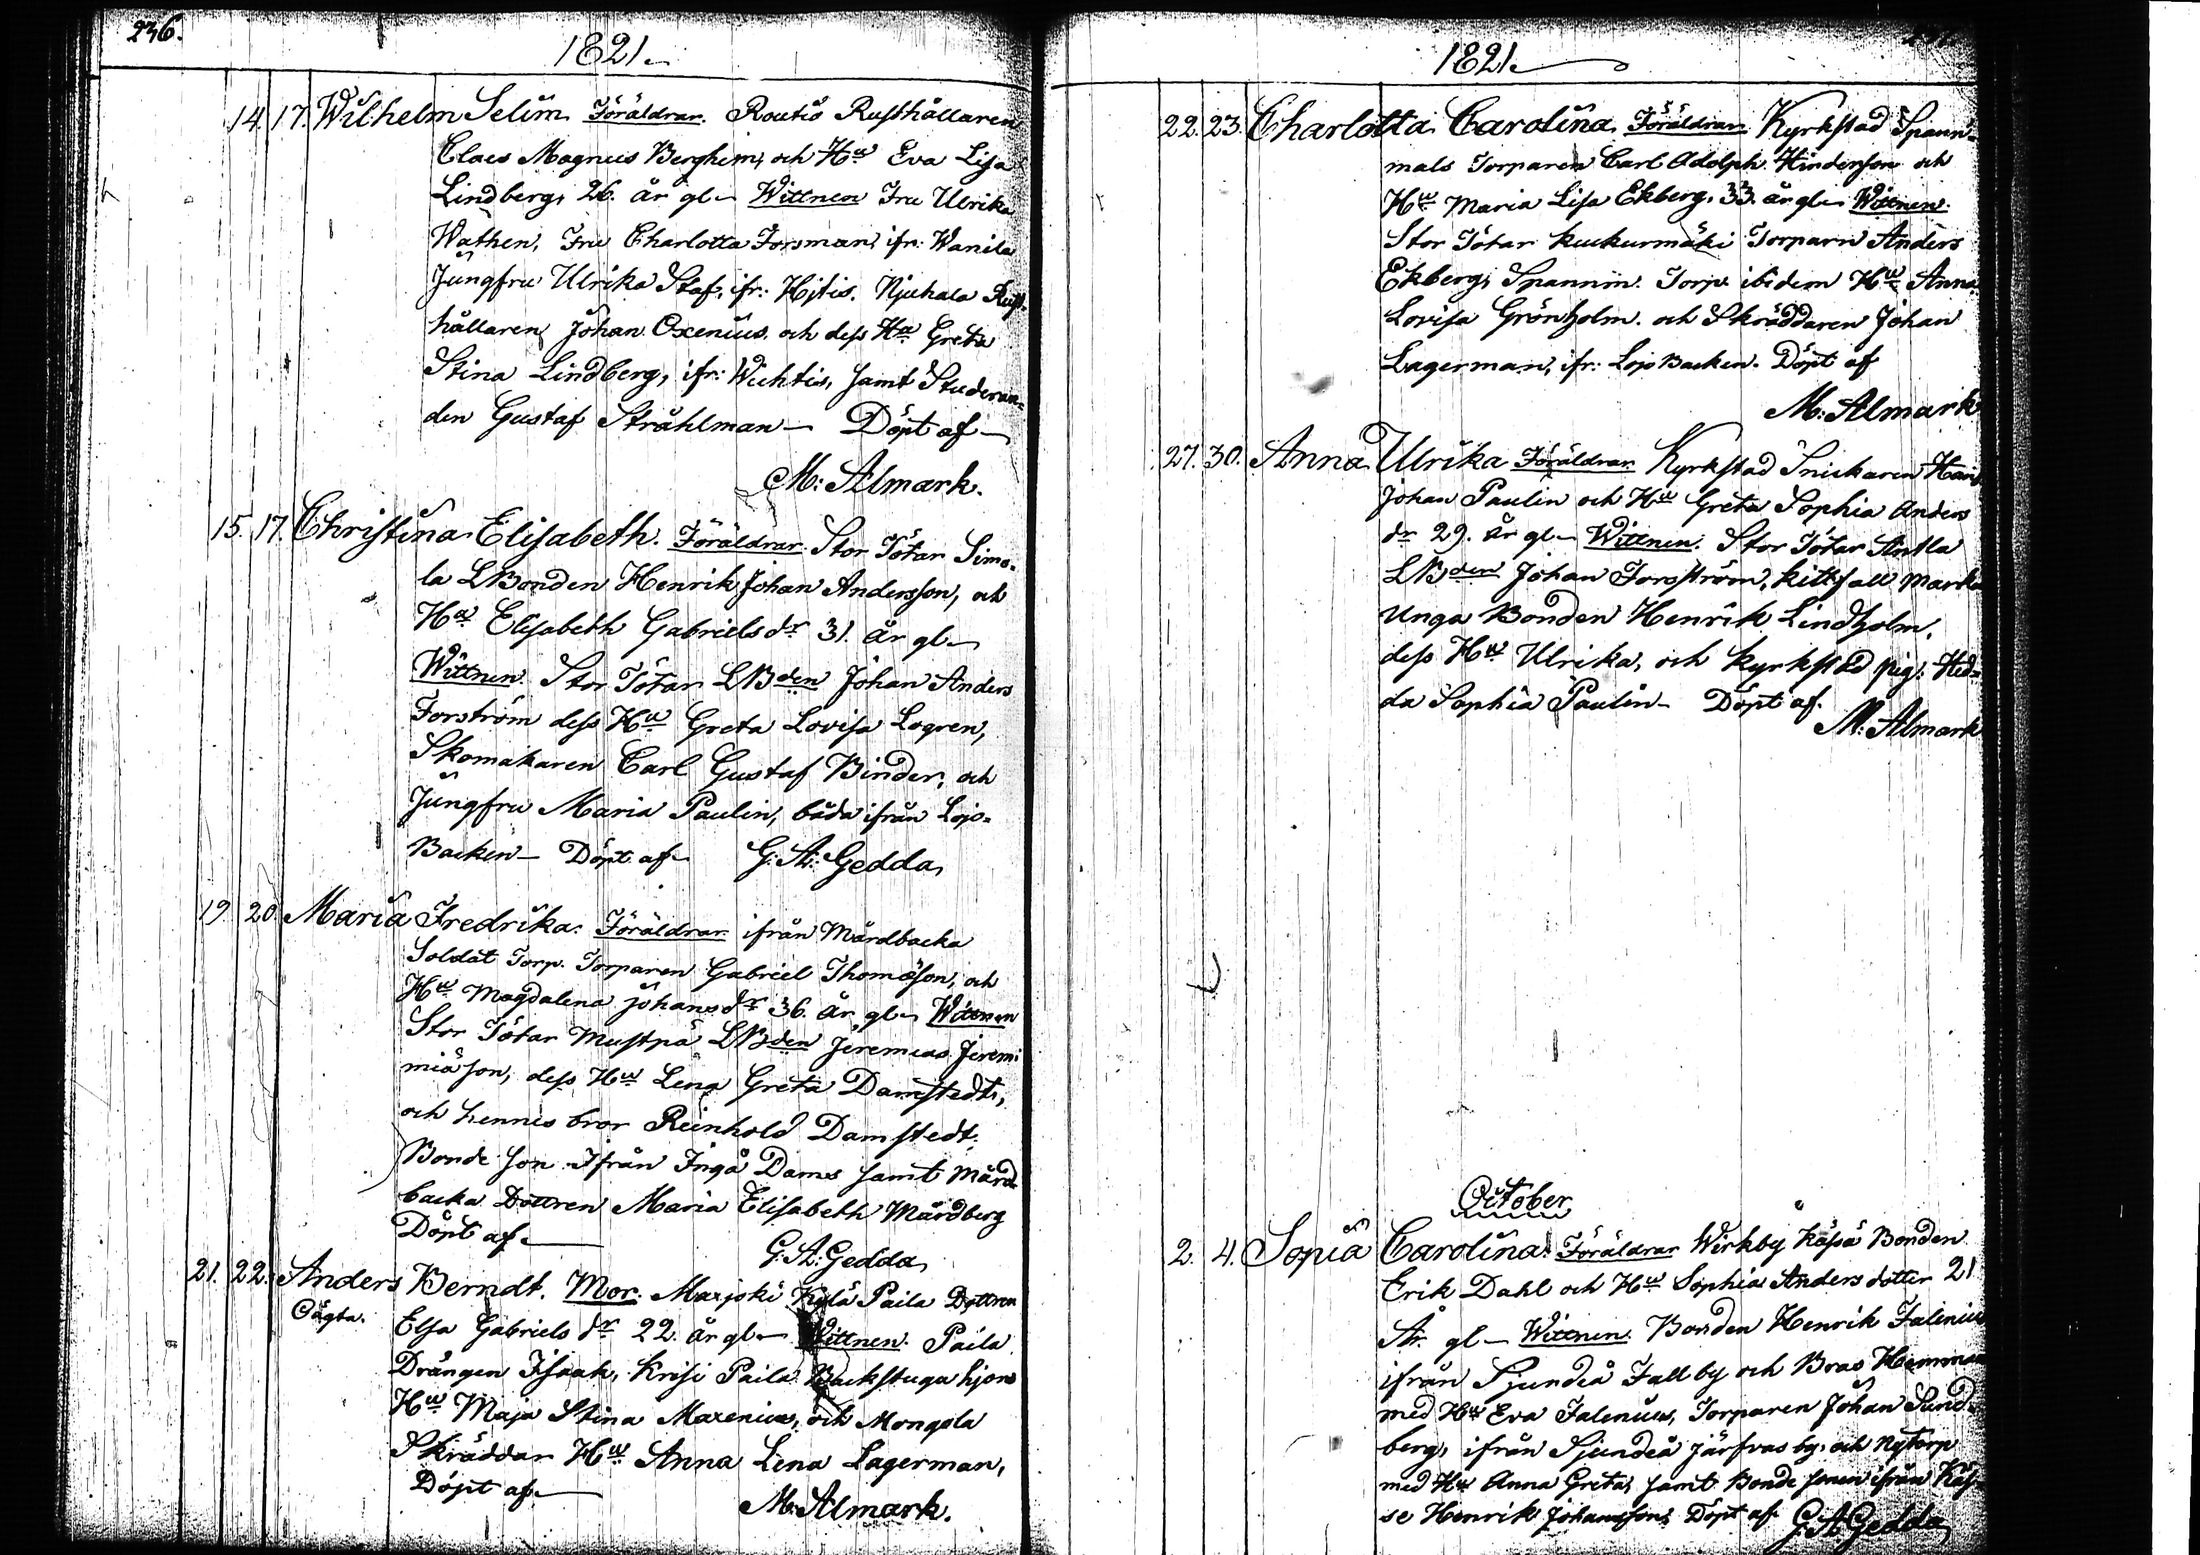 236.
1821.
14. 17. Wilhelm Selim. Föräldrar. Routiö Rusthållaren
Claes Magnus Berghem, och Hu Eva Lisa
Lindberg, 26. år gl. Wittnen Fru Ulrika
Wathen, Fru Charlotta Forsman, ifr: Wanila
Jungfru Ulrika Staf, ifr: Hitis. Njuhala Rust-
hållaren Johan Oxenius och dess Hu Greta
Stina Lindberg, ifr: Wichtis, samt Studeran=
den Gustaf Stråhlman — Döpt af —
M: Almark.
15. 17. Christina Elisabeth. Föräldrar. Stor Tötar Simo-
la LBonden Henrik Johan Andersson, och
Hu Elisabeth Gabriels dr 31. år gl.
Wittnen. Stor Tötar LBden Johan Anders
Forström dess Hu Greta Lovisa Logren,
Skomakaren Carl Gustaf Binder, och
Jungfru Maria Paulin, båda ifrån Lojo-
Backen — Döpt af — G: A: Gedda
19. 20. Maria Fredrika. Föräldrar ifrån Mårdbacka
Soldat Torp. Torparen Gabriel Thomæson, och
Hu Magdalena Johans dr 36. år gl. Wittnen
Stor Tötar Mustpä LBden Jeremias Jerem:
miäson, dess Hu Lena Greta Damstedt,
och hennes bror Reinhold Damstedt,
Bonde son ifrån Ingå Dams samt Mård-
backa Dottren Maria Elisabeth Mårdberg
Döpt af — G: A: Gedda
21. 22. Anders Berndt. Mor. Marjoki Kylä Paila Dottren
Oägta. Elsa Gabriels dr 22. år gl — Wittnen. Paila
Drängen Isaak, Krisi Paila Backstugu hjons
Hu Maja Stina Maxenius, och Mongola
Skräddar Hu Anna Lena Lagerman,
Döpt af — M: Almark.
1821.
22. 23. Charlotta Carolina. Föräldrar Kyrkstad Spann-
mals Torparen Carl Adolph Hinderson och
Hu Maria Lisa Ekberg, 33. år gl. Wittnen.
Stor Tötar Kuckurmäki Torparn Anders
Ekberg, Spannm. Torp. ibidem Hu Anna
Lovisa Grönholm. och Skräddaren Johan
Lagerman, ifr: Lojo Backen. Döpt af
M: Almark
27. 30. Anna Ulrika Föräldrar Kyrkstad Snickaren
Johan Paulin och Hu Greta Sophia Anders
dr 29. år gl — Wittnen. Stor Tötar Antla
LBden Johan Forsström, Kittfall
Unga Bonden Henrik Lindholm,
dess Hu Ulrika, och Kyrkstad pig: Hed-
da Sophia Paulin — Döpt af.
M: Almark
October
2. 4. Sopia Carolina. Föräldrar Wirkby Käpsä Bonden
Erik Dahl och Hu Sophia Anders dotter 21
År gl — Wittnen. Bonden Henrik Falenius
ifrån Sjundeå Fallby och Bras Hemman
med Hu Eva Falenius, Torparen Johan Sund-
berg, ifrån Sjundeå Järfvas by, och Nytorp
med Hu Anna Greta, samt Bonde sonen ifrån
se Henrik Johansson, Döpt af G A Gedda